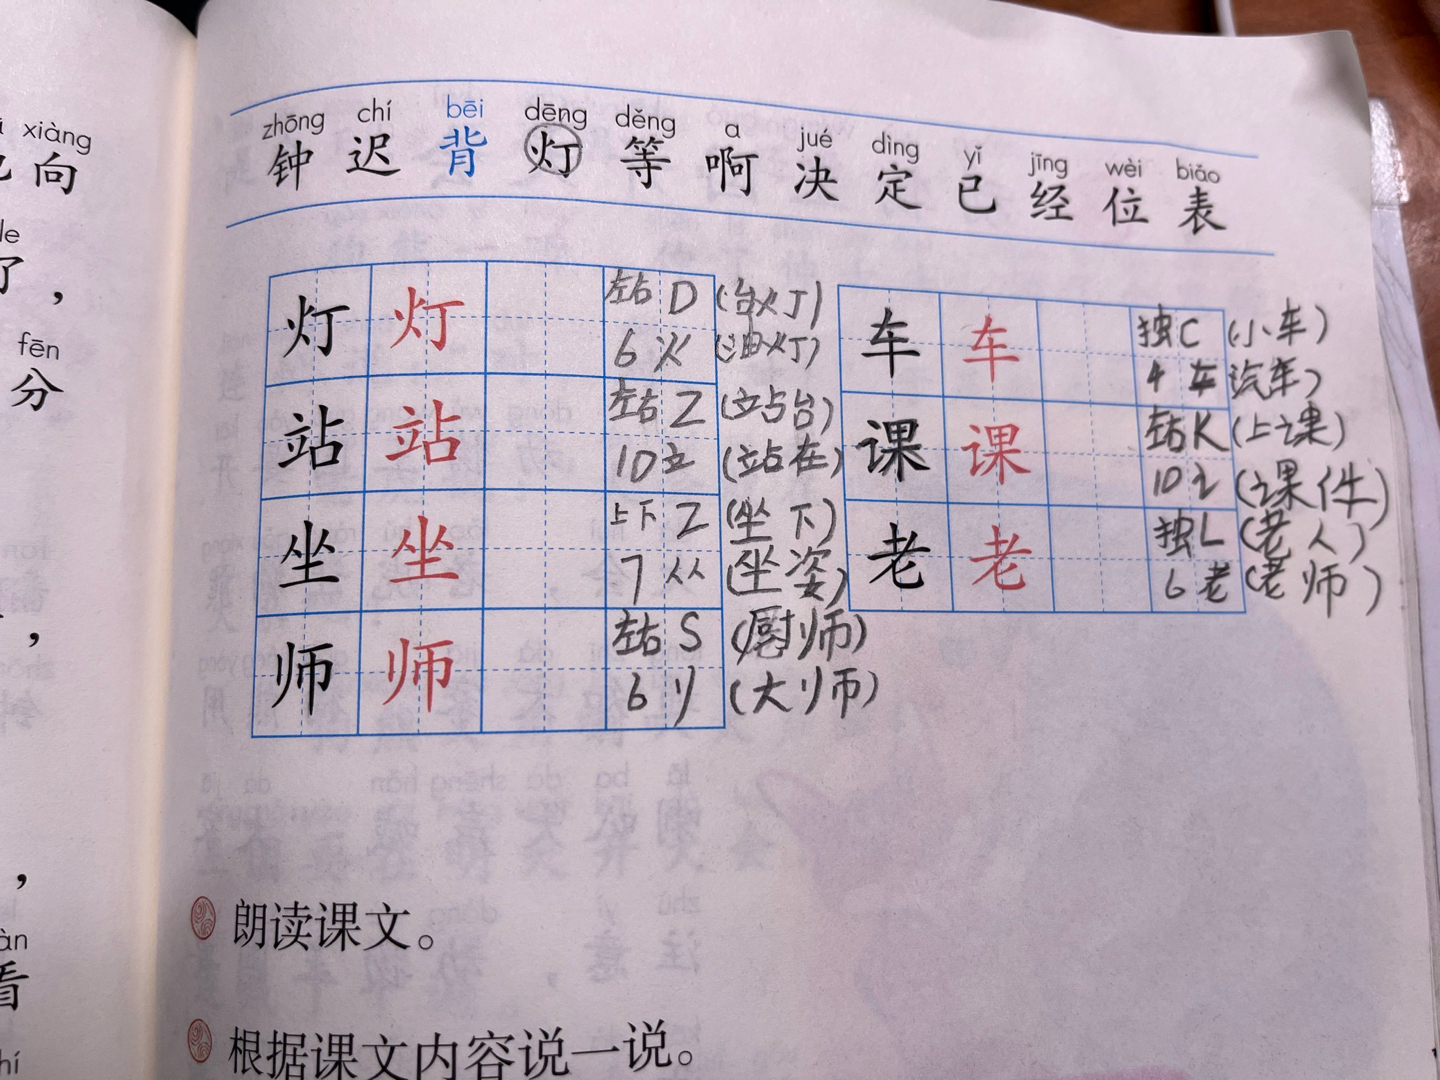 xiàng
向
le
了，
fēn
分
，
，
àn
看
hí
zhōng chí bēi dēng děng a jué dìng yǐ jīng wèi biǎo
钟 迟 背 灯 等 啊 决 定 已 经 位 表
灯 灯 左右 D (台灯)
6 火 (油灯)
站 站 左右 Z (站台)
10 立 (站在)
坐 坐 上下 Z (坐下)
7 从 (坐姿)
师 师 左右 S (厨师)
6 刂 (大师)
车 车 独 C (小车)
4 车 汽车)
课 课 左右 K (上课)
10 讠 (课件)
老 老 独 L (老人)
6 老 (老师)
朗读课文。
根据课文内容说一说。